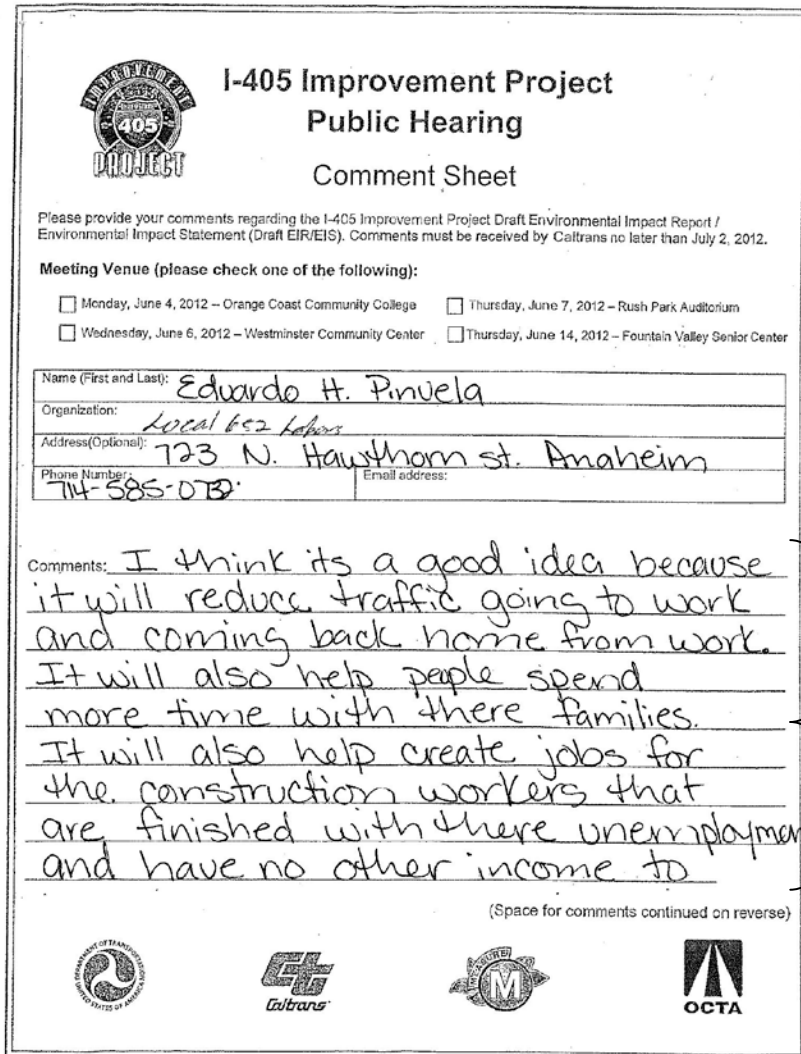 I-405 Improvement Project
Public Hearing
Comment Sheet
IMPROVEMENT
405
PROJECT
Please provide your comments regarding the I-405 Improvement Project Draft Environmental Impact Report /
Environmental Impact Statement (Draft EIR/EIS). Comments must be received by Caltrans no later than July 2, 2012.
Meeting Venue (please check one of the following):
Monday, June 4, 2012 – Orange Coast Community College
Thursday, June 7, 2012 – Rush Park Auditorium
Wednesday, June 6, 2012 – Westminster Community Center
Thursday, June 14, 2012 – Fountain Valley Senior Center
Name (First and Last): Eduardo H. Pinuela
Organization: Local 652
Address(Optional): 723 N. Hawthorn st. Anaheim
Phone Number: 714-585-
Email address:
Comments: I think its a good idea because
it will reduce traffic going to work
and coming back home from work.
It will also help people spend
more time with there families.
It will also help create jobs for
the construction workers that
are finished with there unemploymen
and have no other income to
(Space for comments continued on reverse)
DEPARTMENT OF TRANSPORTATION
UNITED STATES OF AMERICA
Caltrans
MEASURE
M
OCTA